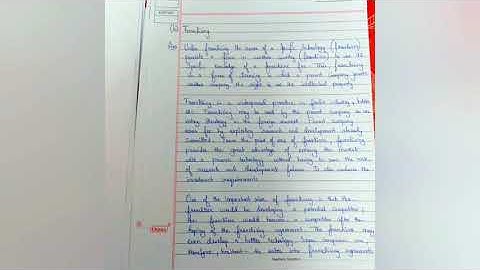 Franchising
Ans Under franchising the owner of a specific technology (franchisor)
permits a firm in another country (franchisee) to use its
specific knowledge of a franchise fee. This franchising
is a form of licensing in that a parent company grants
another company the right to use its intellectual property
Franchising is a widespread practice in foods industry, hotels
etc. Franchising may be used by the parent company as an
entry strategy in the foreign market. Parent company
earns fee by exploiting research and development already
committed. From the point of view of franchisee, franchising
provides the great advantage of entering the market
with a proven technology without having to run the risk
of research and development failure. It also reduces the
investment requirements
One of the important risks of franchising is that the
franchisor would be developing a potential competitor;
the franchisee would become a competitor after the
expiry of the franchising agreement. The franchisee may
even develop a better technology. Some companies are,
therefore, hesitant to enter into franchising agreements